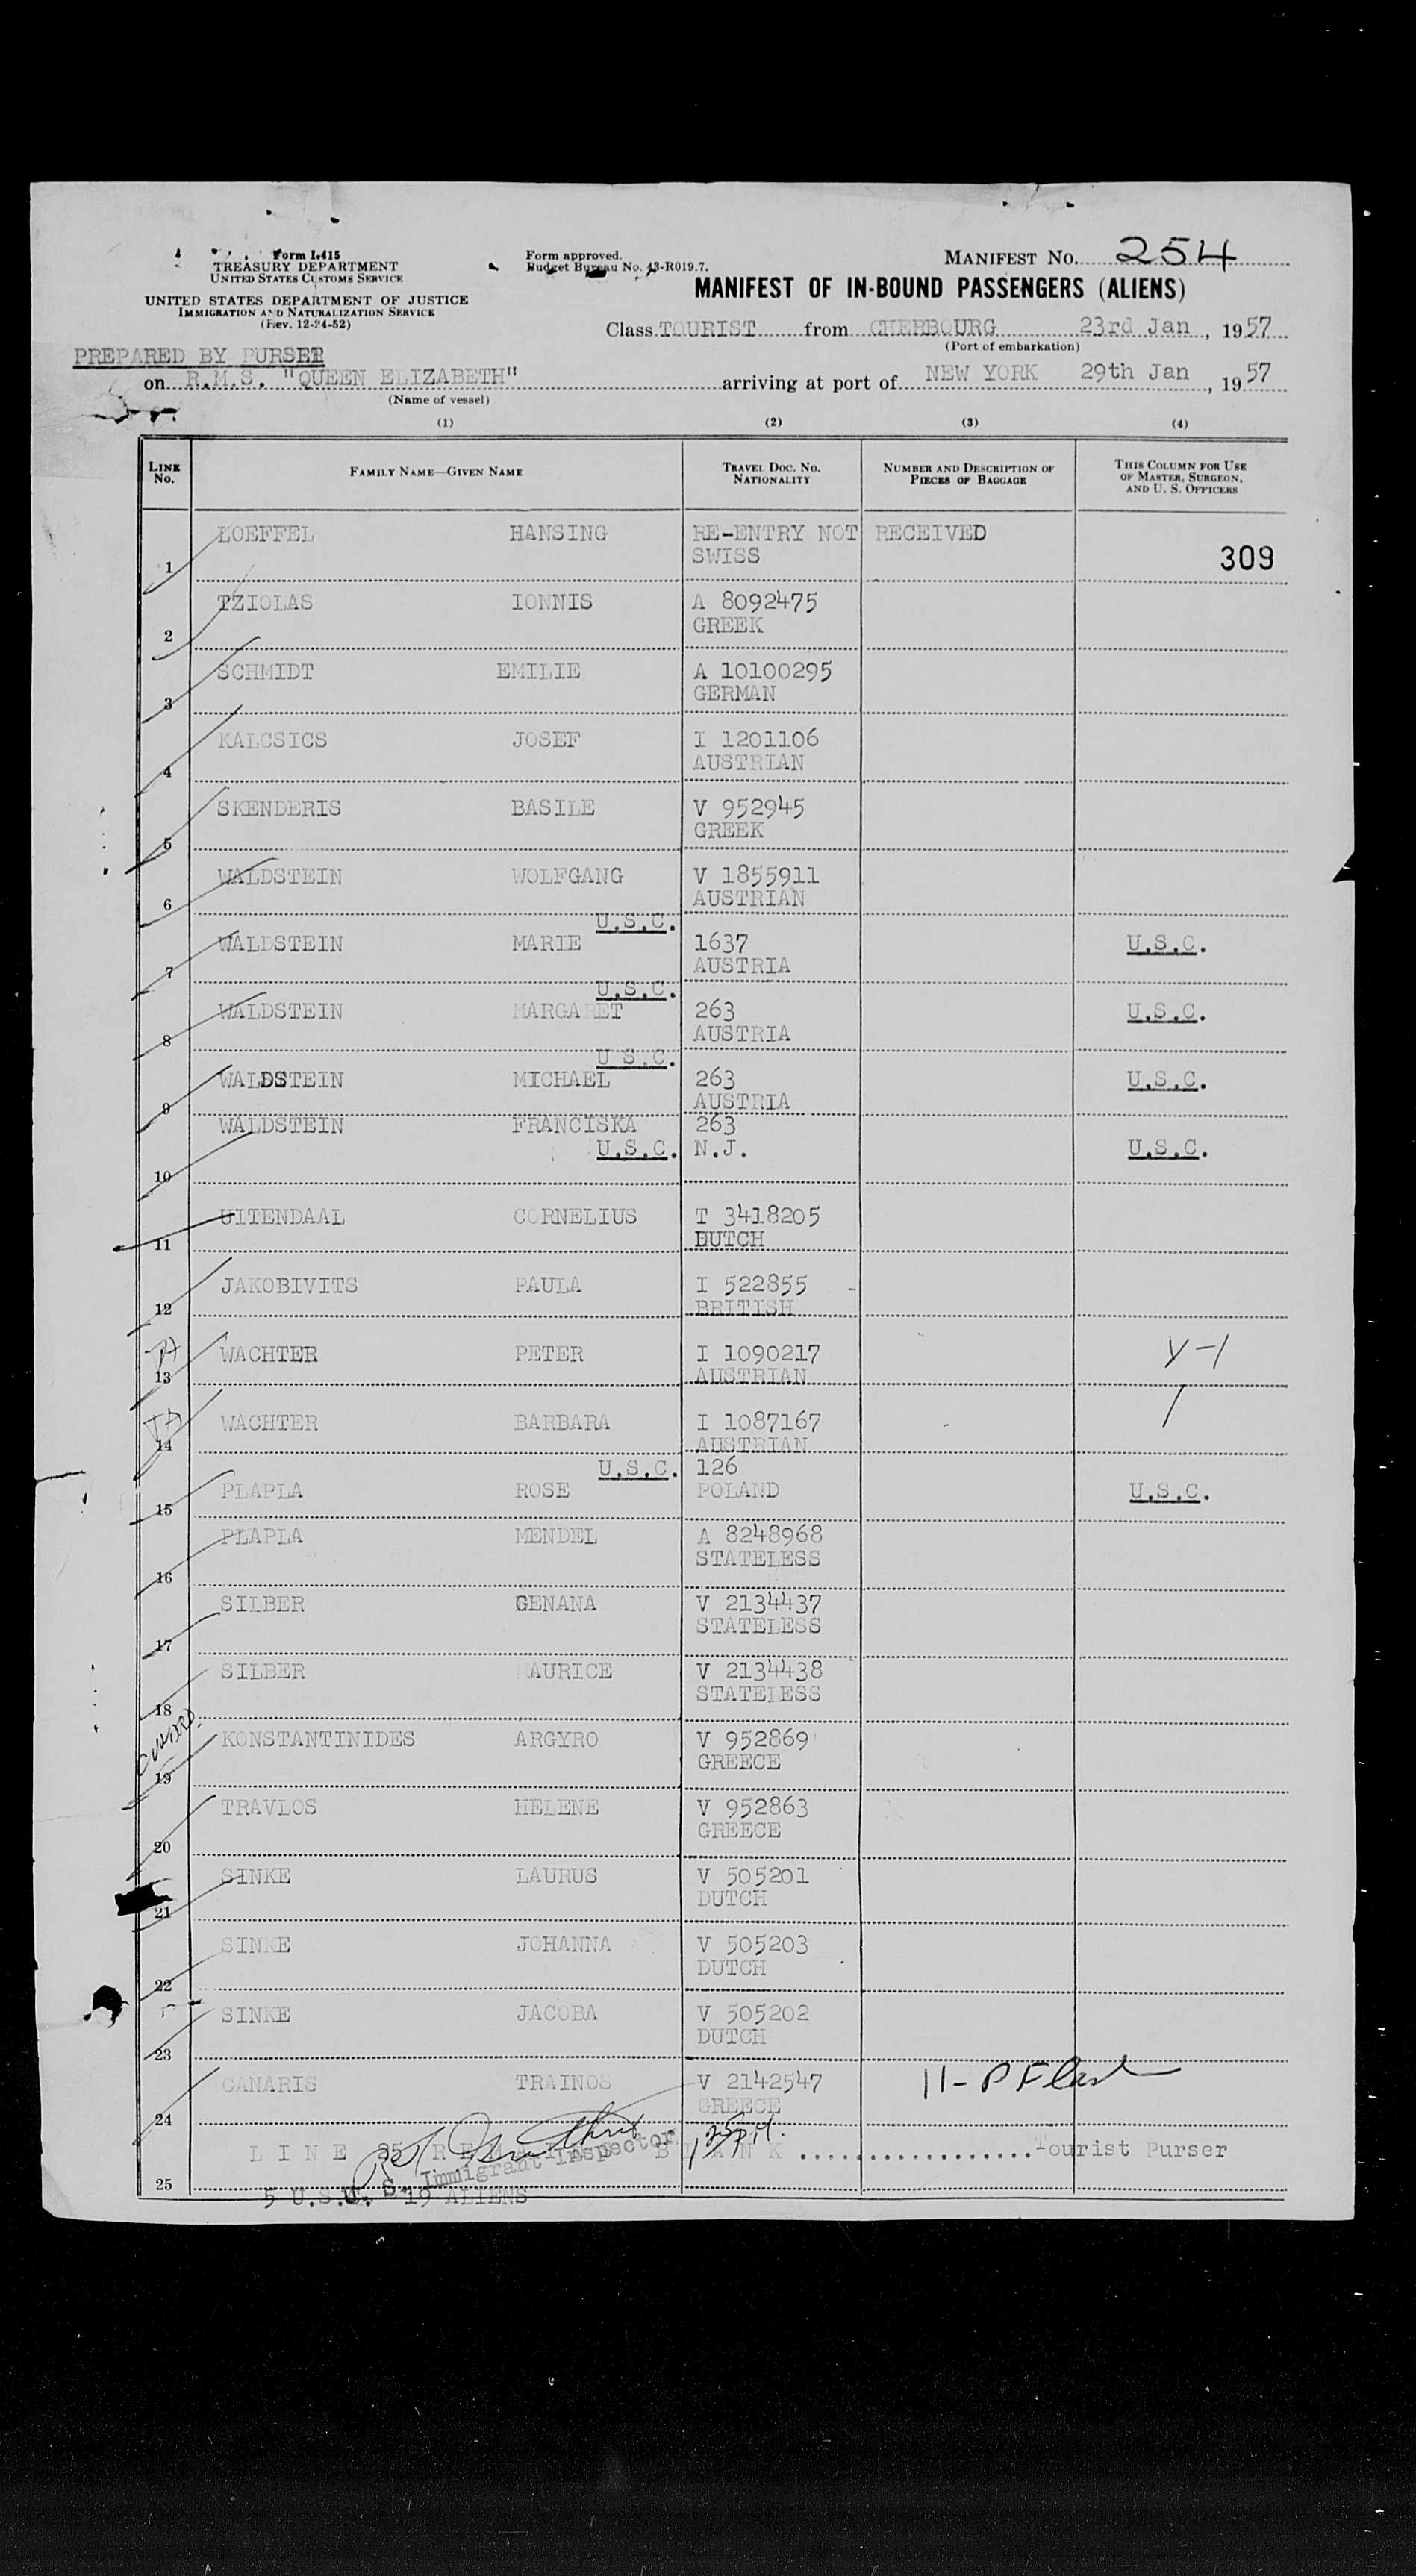 Form I-415
TREASURY DEPARTMENT
UNITED STATES CUSTOMS SERVICE
UNITED STATES DEPARTMENT OF JUSTICE
IMMIGRATION AND NATURALIZATION SERVICE
(Rev. 12-24-52)
Form approved.
Budget Bureau No. 43-R019.7.
MANIFEST NO. 254
MANIFEST OF IN-BOUND PASSENGERS (ALIENS)
Class TOURIST from CHERBOURG 23rd Jan, 1957
(Port of embarkation)
PREPARED BY PURSER
on R.M.S. "QUEEN ELIZABETH" arriving at port of NEW YORK 29th Jan, 1957
(Name of vessel)
(1) (2) (3) (4)
LINE No. FAMILY NAME—GIVEN NAME TRAVEL DOC. NO. NATIONALITY NUMBER AND DESCRIPTION OF PIECES OF BAGGAGE THIS COLUMN FOR USE OF MASTER, SURGEON, AND U. S. OFFICERS
1 LOEFFEL HANSING RE-ENTRY NOT RECEIVED
SWISS 309
2 TZIOLAS IONNIS A 8092475
GREEK
3 SCHMIDT EMILIE A 10100295
GERMAN
4 KALCSICS JOSEF I 1201106
AUSTRIAN
5 SKENDERIS BASILE V 952945
GREEK
6 WALDSTEIN WOLFGANG V 1855911
AUSTRIAN
U.S.C.
7 WALDSTEIN MARIE 1637 U.S.C.
AUSTRIA
U.S.C.
8 WALDSTEIN MARGARET 263 U.S.C.
AUSTRIA
U.S.C.
9 WALDSTEIN MICHAEL 263 U.S.C.
AUSTRIA
10 WALDSTEIN FRANCISKA 263
U.S.C. N.J. U.S.C.
11 UITENDAAL CORNELIUS T 3418205
DUTCH
12 JAKOBIVITS PAULA I 522855
BRITISH
13 WACHTER PETER I 1090217 V-1
AUSTRIAN
14 WACHTER BARBARA I 1087167
AUSTRIAN
U.S.C. 126
15 PLAPLA ROSE POLAND U.S.C.
16 PLAPLA MENDEL A 8248968
STATELESS
17 SILBER GENANA V 2134437
STATELESS
18 SILBER MAURICE V 2134438
STATELESS
19 KONSTANTINIDES ARGYRO V 952869
GREECE
20 TRAVLOS HELENE V 952863
GREECE
21 SINKE LAURUS V 505201
DUTCH
22 SINKE JOHANNA V 505203
DUTCH
23 SINKE JACOBA V 505202
DUTCH
24 CANARIS TRAINOS V 2142547
GREECE
25 LINE 25 BLANK ................. Tourist Purser
U. S. Immigrant Inspector
5 U.S.C. 19 ALIENS